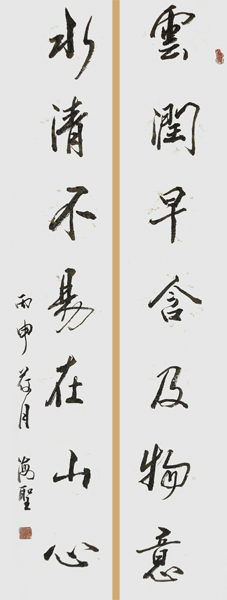 雲潤早含及物意
水清不易在山心
丙申荷月 海聖